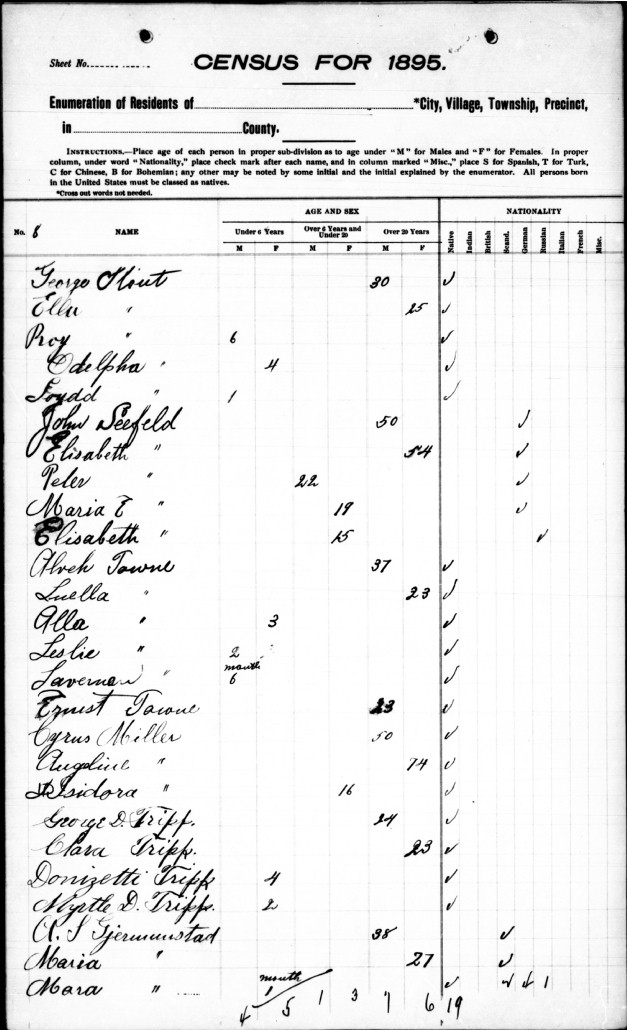 Sheet No.
CENSUS FOR 1895.
Enumeration of Residents of *City, Village, Township, Precinct,
in County.
INSTRUCTIONS.—Place age of each person in proper sub-division as to age under "M" for Males and "F" for Females. In proper
column, under word "Nationality," place check mark after each name, and in column marked "Misc.," place S for Spanish, T for Turk,
C for Chinese, B for Bohemian; any other may be noted by some initial and the initial explained by the enumerator. All persons born
in the United States must be classed as natives.
*Cross out words not needed.
AGE AND SEX NATIONALITY
No. 8 NAME Under 6 Years Over 6 Years and Under 20 Over 20 Years Native Indian British Scand. German Russian Italian French Misc.
M F M F M F
George Stout 30 ✓
Ella " 25 ✓
Roy " 6 ✓
Odelpha " 4 ✓
" 1 ✓
John Seefeld 50 ✓
Elisabeth " 54 ✓
Peter " 22 ✓
Maria E " 19 ✓
Elisabeth " 15 ✓
Towne 37 ✓
Luella " 23 ✓
Alla " 3 ✓
Leslie " 2 ✓
month
Lavernon " 6 ✓
Ernest Towne 23 ✓
Cyrus Miller 50 ✓
Angeline " 74 ✓
Isidora " 16 ✓
George D. Tripp. 24 ✓
Clara Tripp. 23 ✓
Donizetti Tripp 4 ✓
Myrtle D. Tripp. 2 ✓
A. S Gjermunstad 38 ✓
Maria " 27 ✓
month
Mara " 1 ✓ 4 1
4 5 1 3 7 6 19